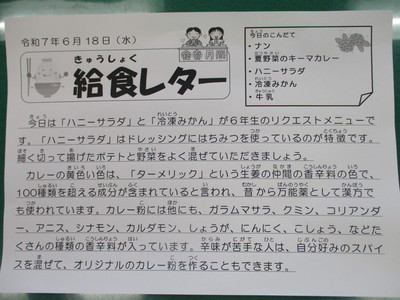 令和7年6月18日（水）
きゅうしょく
給食レター
今日のこんだて
・ナン
・夏野菜のキーマカレー
・ハニーサラダ
・冷凍みかん
・牛乳
今日は「ハニーサラダ」と「冷凍みかん」が6年生のリクエストメニューで
す。「ハニーサラダ」はドレッシングにはちみつを使っているのが特徴です。
細く切って揚げたポテトと野菜をよく混ぜていただきましょう。
カレーの黄色い色は、「ターメリック」という生姜の仲間の香辛料の色で、
100種類を超える成分が含まれていると言われ、昔から万能薬として漢方で
も使われています。カレー粉には他にも、ガラムマサラ、クミン、コリアンダ
ー、アニス、シナモン、カルダモン、しょうが、にんにく、こしょう、などた
くさんの種類の香辛料が入っています。辛味が苦手な人は、自分好みのスパイ
スを混ぜて、オリジナルのカレー粉を作ることもできます。